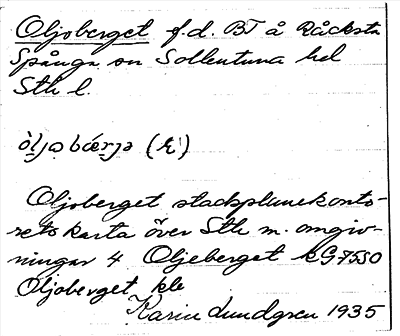 Oljoberget f.d. BT å Råcksta
Spånga sn Sollentuna hd
Sth l.
òljo bǽrjə (E')
Oljoberget stadsplanekonto-
rets karta över Sth m. omgiv-
ningar 4 Oljeberget kG7550
Oljoberget kle
Karin Lundgren 1935